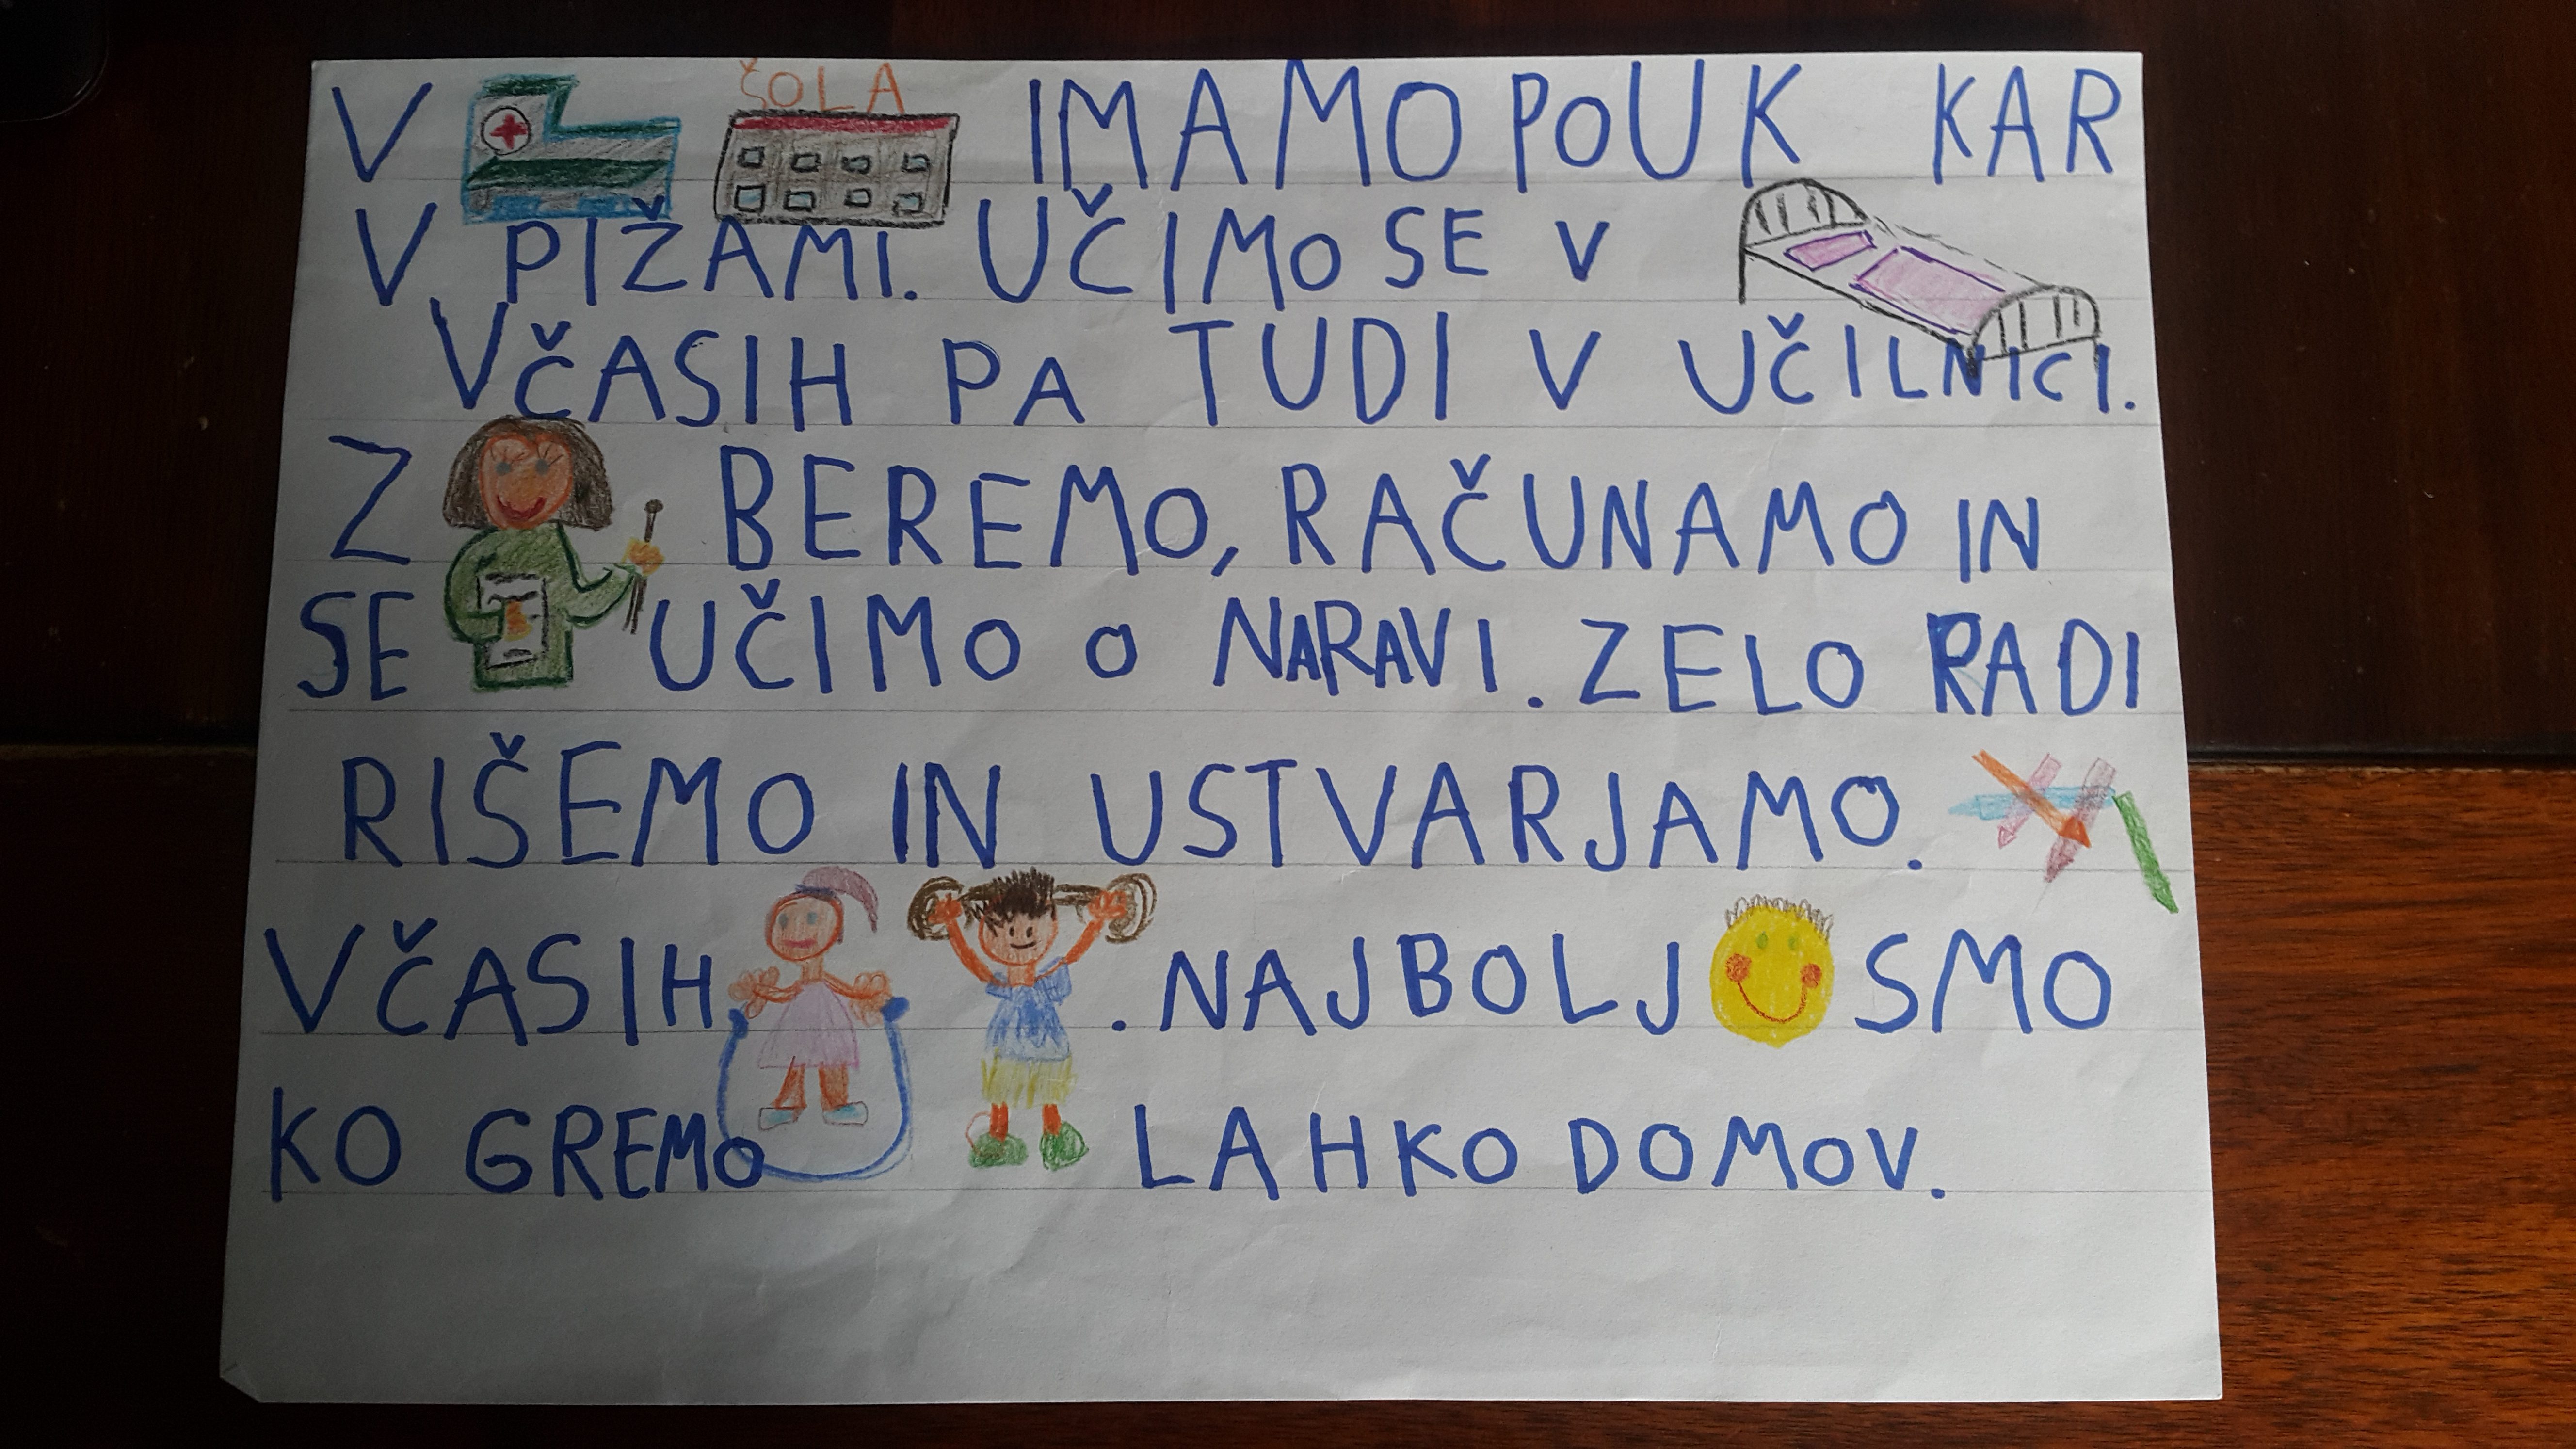 ŠOLA
V IMAMO POUK KAR
V PIŽAMI. UČIMO SE V
VČASIH PA TUDI V UČILNICI.
Z BEREMO, RAČUNAMO IN
SE UČIMO O NARAVI. ZELO RADI
RIŠEMO IN USTVARJAMO.
VČASIH . NAJBOLJ SMO
KO GREMO LAHKO DOMOV.